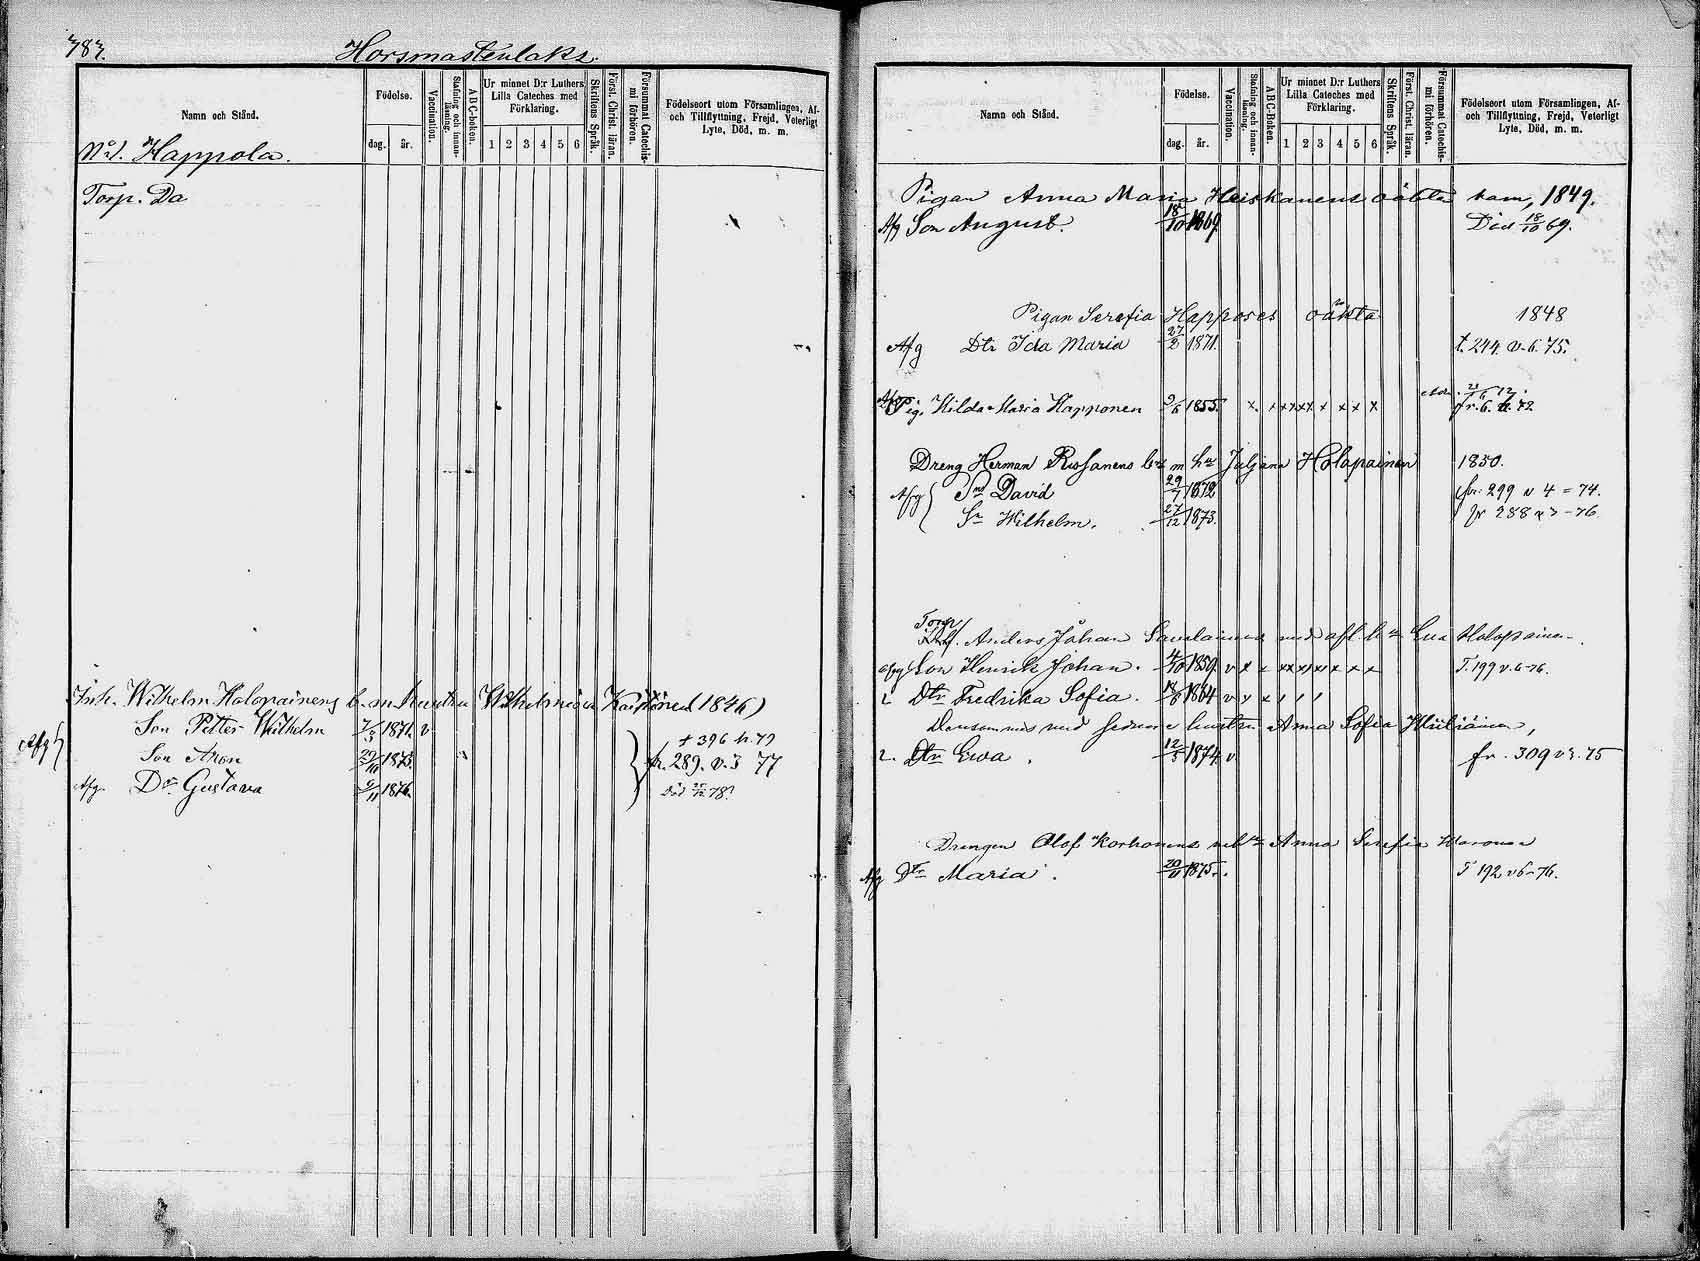 787.
Horsmastenlaks.
Namn och Stånd.
Födelse.
dag.
år.
Vaccination.
Stafning och innanläsning.
A B C-boken.
Ur minnet D:r Luthers
Lilla Cateches med
Förklaring.
1 2 3 4 5 6
Skriftens Språk.
Först. Christ. läran.
Försummat Catechismi förhören.
Födelseort utom Församlingen, Af-
och Tillflyttning, Frejd, Veterligt
Lyte, Död, m. m.
No 1. Happola.
Torp. Da
Inh. Wilhelm Holopainens b. m. hustru Wilhelmina (1846)
Afg Son Petter Wilhelm 7/3 1871. v ± 396 77
Son Aron 1873. fr. 289. v. 3 77
Afg. Dr Gustava 9/11 1876. Död 78.
Namn och Stånd.
Födelse.
dag.
år.
Vaccination.
Stafning och innanläsning.
A B C-Boken.
Ur minnet D:r Luthers
Lilla Cateches med
Förklaring.
1 2 3 4 5 6
Skriftens Språk.
Först. Christ. läran.
Försummat Catechismi förhören.
Födelseort utom Församlingen, Af-
och Tillflyttning, Frejd, Veterligt
Lyte, Död, m. m.
Pigan Anna Maria Heiskanens oäkta barn, 1849.
Afg Son August. 18/10 1869. Död 18/10 69.
Pigan Serafia Happoses oäkta 1848
Afg Dtr Ida Maria 27/2 1871. t. 244. v. 6. 75.
Afg Pig. Hilda Maria Happonen 9/6 1855. x x x x x x x x x x fr. 6. 72
Dreng Herman b m hu Juljana Holopainen 1850.
Afg { Sn David 29/7 1872 fr. 299 v 4 = 74.
Sn Wilhelm. 27/12 1873. fr 288 v 3 - 76.
Torp
Anders Johan med afl. h Eva Holopainen
afg Son Henrik Johan. 4/10 1859. v x x x x x x x x T. 199 v. 6-76.
Dtr Fredrika Sofia. 1864 v x x / / /
Densammes med hustru Anna Sofia
Dtr Ewa. 12/5 1874. v fr. 309 v 3. 75
Drengen Olof Korhonens Anna Serafia
Afg Dr Maria. 20/11 1875. T 192 v 6-76.